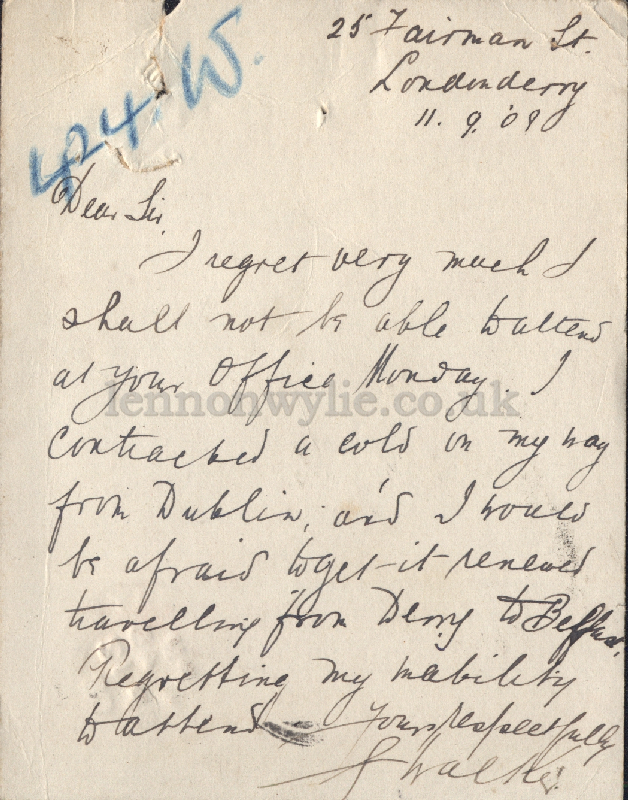 25 Fairman St.
Londonderry
11. 9. '09
424. W.
Dear Sir,
I regret very much I
shall not be able to attend
at your Office Monday. I
contracted a cold on my way
from Dublin, and I would
be afraid to get it renewed
travelling from Derry to Belfast.
Regretting my inability
to attend
Yours respectfully
S Walker.
lennonwylie.co.uk